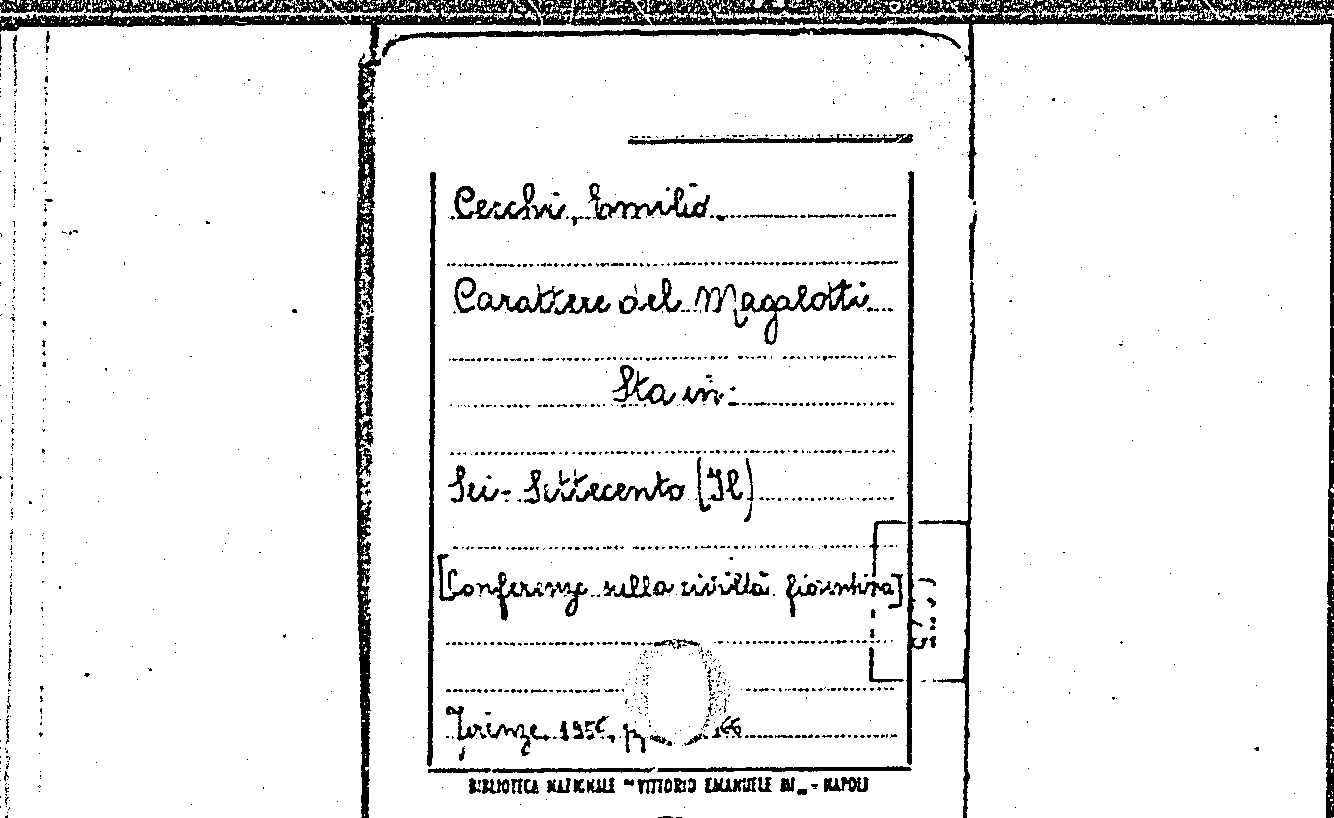 Cecchi, Emilio.
Carattere del Magalotti.
Sta in:
Sei-Settecento (Il)
[Conferenze sulla civiltà fiorentina]
Firenze, 1956, 66
BIBLIOTECA NAZIONALE "VITTORIO EMANUELE III„ - NAPOLI